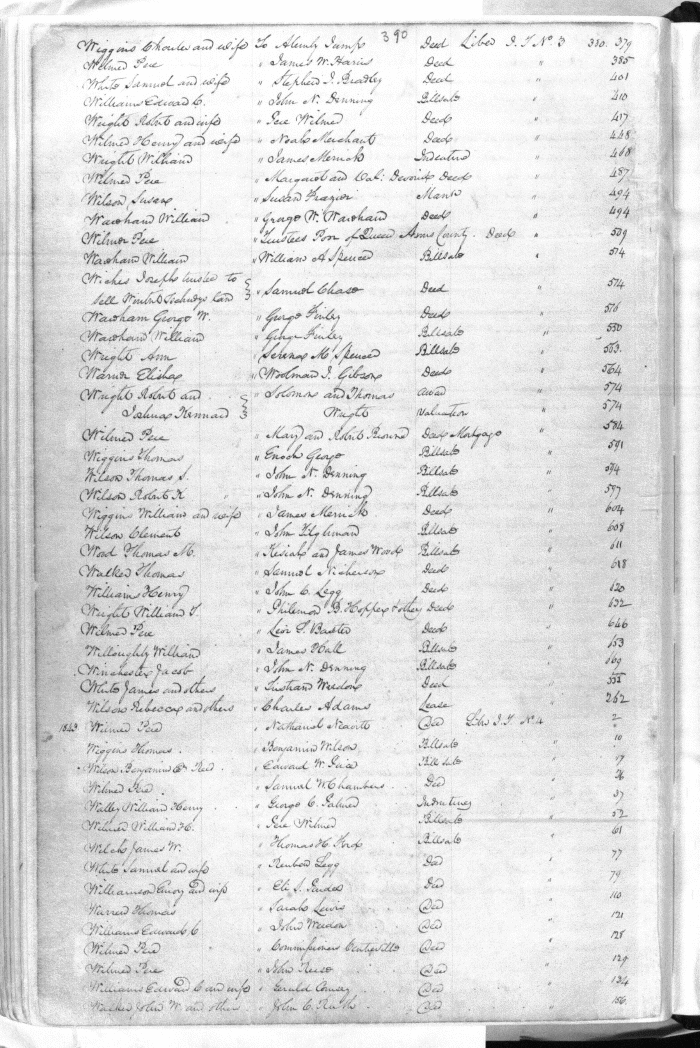 390
Wiggins Charles and wife To Alemby Jump Deed Liber J. T No. 3 380. 379
Wilmer Pere " James W. Harris Deed " 385
White Samuel and wife " Stephen J. Bradley Deed " 401
Williams Edward C. " John N. Denning Billsale " 410
Wright Robert and wife " Pere Wilmer Deed " 417
Wilmer Henry and wife " Noah Merchant Deed " 448
Wright William " James Merrick Indenture " 468
Wilmer Pere " Margaret and Deed " 487
Wilson Susan " Susan Frazier Mann " 494
Wareham William " George W. Wareham Deed " 494
Wilmer Pere " Trustees Poor of Queen Anns County. Deed " 509
Wareham William " William A Spencer Billsale " 574
Wickes Joseph trustee to
sell land " Samuel Chase Deed " 574
Wareham George W. " George Finley Deed " 576
Wareham William " George Finley Billsale " 580
Wright Ann " Serena M. Spencer Billsale " 563.
Warner Elisha " Woolman J. Gibson Deed " 564
Wright Robert and " Solomon and Thomas award " 574
Joshua Kennard Wright valuation " 574
Wilmer Pere " Mary and Robert Browne Deed Mortgage " 584
Wiggins Thomas " Enoch George Billsale " 591
Wilson Thomas S. " John N. Denning Billsale " 594
Wilson Robert K " " John N. Denning Billsale " 597
Wiggins William and wife " James Merrick Deed " 604
Wilson Clement " John Tilghman Billsale " 608
Word Thomas M. " Kesiah and James Woods Billsale " 611
Walker Thomas " Samuel Nicherson Deed " 618
Williams Henry " John C. Legg Deed " 620
Wright William T. " Philemon B. Hopper & other Deed " 632
Wilmer Pere " Levi T. Baxter Deed " 646
Willoughby William " James Hall Billsale " 653
Winchester Jacob " John N. Denning Billsale " 669
White James and others " Tristram Weedon Deed " 555
Wilson Rebecca and others " Charles Adams Lease " 262
1843 Wilmer Pere " Nathaniel Deed Libr J. T No. 4 2
Wiggins Thomas " Benjamin Wilson Billsale " 10
Wilson Benjamin " Edward W. Price Bill sale " 17
Wilmer Pere " Samuel W. Chambers Deed " 26
Walley William Henry " George C. Palmer Indentures " 37
Wilmer William H. " Pere Wilmer Billsale " 52
Welch James W. " Thomas H. Ford Billsale " 61
White Samuel and wife " Reuben Legg Deed " 77
Williamson and wife " Eli S. Deed " 79
Warner Thomas " Sarah Lewis Deed " 110
Williams Edward C " John Weedon Deed " 121
Wilmer Pere " Commissioners Centreville Deed " 128
Wilmer Pere " John Reese Deed " 129
Williams Edward C and wife " Gerald Coursey Deed " 134
Walker John W. and others " John C. Ruth Deed " 156